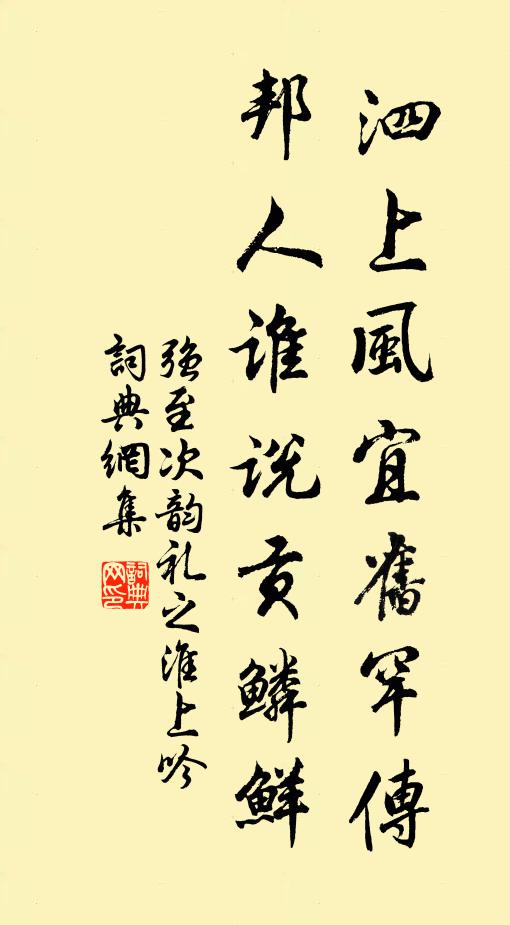 泗上風宜舊罕傳
邦人誰説貢鱗鮮
強至次韵礼之淮上吟
詞典網集
詞典网印